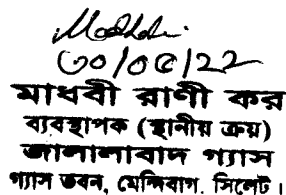 ৩০/০৫/২২
মাধবী রাণী কর
ব্যবস্থাপক (স্থানীয় ক্রয়)
জালালাবাদ গ্যাস
গ্যাস ভবন, মেন্দিবাগ, সিলেট।